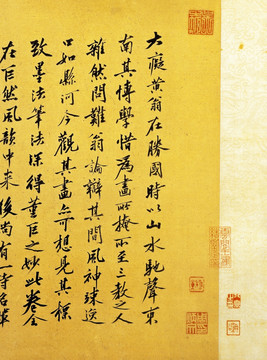 大癡黃翁在勝國時以山水馳聲東
南其博學惜為畫所掩所至三教之人
雜然問難翁論辯其間風神竦逸
口如縣河今觀其畫亦可想見其標
致墨法筆法深得董巨之妙此卷全
在巨然風韻中來後尚有一時名筆